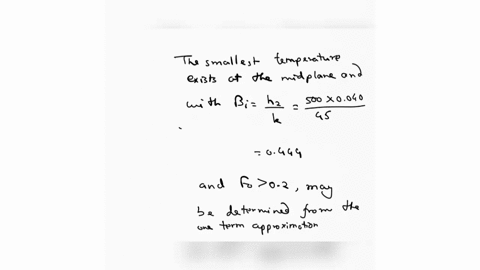 The smallest temperature
exists at the midplane and
with Bi = h2/k = 500 x 0.040/45
= 0.444
and Fo > 0.2, may
be determined from the
one term approximotion